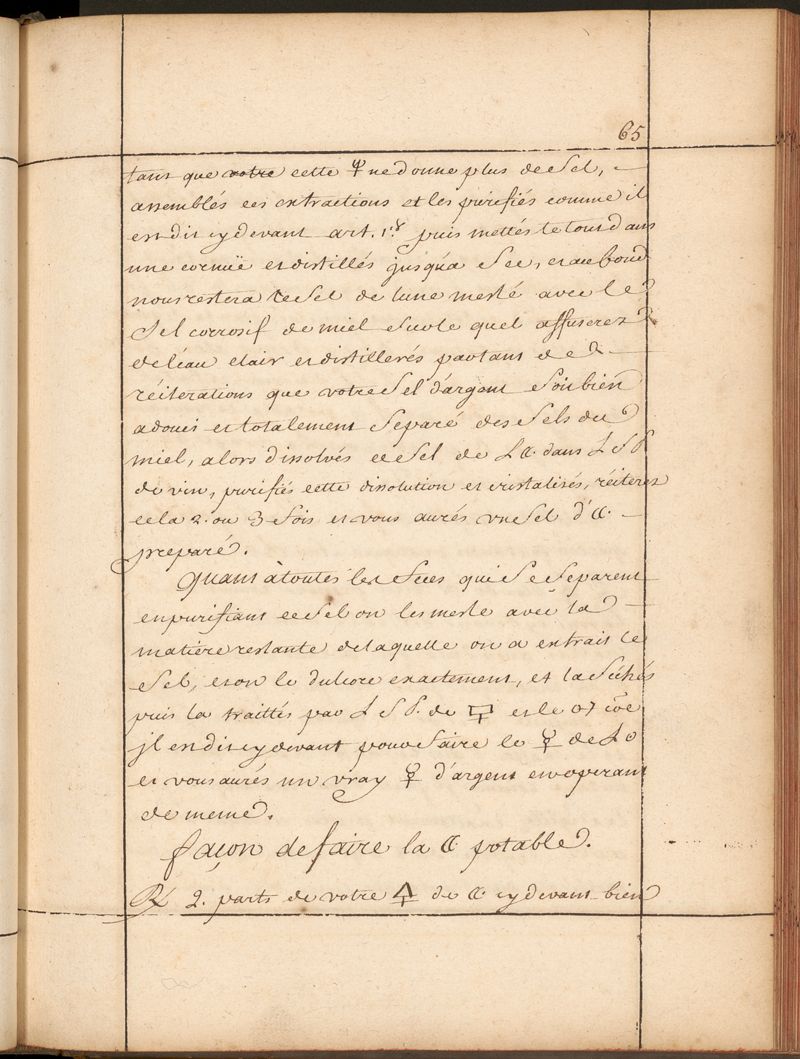 65
tant que votre cette 🜍 ne donne plus de Sel, –
assemblés ces extractions et les purifiés comme il
est dit cy devant art. 1.er puis mettés le tout dans
une cornuë et distillés jusqúa Sec, et au fond
nous restera le Sel de lune meslé avec le
Sel corrosif de miel Sur le quel affuserez
de léau clair et distillerés par tant de –
réiterations que votre Sel d'argent Soit bien
adouci et totalement Separé des Sels du
miel, alors dissolvés ce Sel de L ☾. dans L S P
de vin, purifiés cette dissolution et cristalisés, réiterez
cela 2. ou 3 fois et vous aurés un Sel d'☾. –
preparé.
Quant à toutes les feces qui Se Separent
en purifiant ce Sel on les mesle avec la –
matiere restante de laquelle on a extrait le
Sel, et on le dulcore exactement, et la Séchés
puis la traittés par L S P. de et le coe
jl est dit cy devant pour faire le 🜍 de L
et vous aurés un vray 🜍 d'argent en operant
de meme.
façon de faire la ☾ potable.
R 2. parts de votre de ☾ cy devant bien